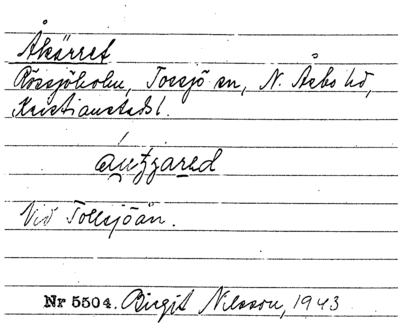 Åkärret
Rössjöholm, Tossjö sn, N. Åsbo hd,
Kristianstads l.
Vid Tollsjöån.
Nr 5504. Birgit Nilsson, 1943